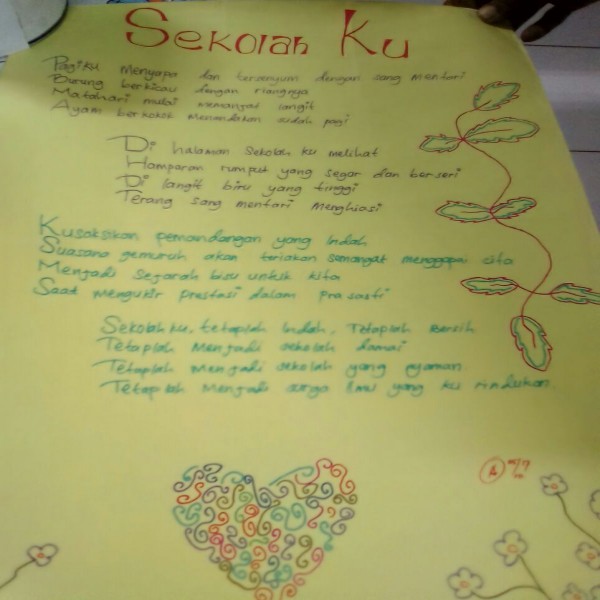 Sekolah Ku
Pagiku menyapa dan tersenyum dengan sang mentari
Burung berkicau dengan riangnya
Matahari mulai memanjat langit
Ayam berkokok menandakan sudah pagi
Di halaman sekolah ku melihat
Hamparan rumput yang segar dan berseri
Di langit biru yang tinggi
Terang sang mentari Menghiasi
Kusaksikan pemandangan yang Indah
Suasana gemuruh akan teriakan semangat menggapai cita
Menjadi sejarah bisu untuk kita
Saat mengukir prestasi dalam prasasti
Sekolah ku, tetaplah Indah, Tetaplah Bersih
Tetaplah Menjadi sekolah damai
Tetaplah Menjadi sekolah yang nyaman
Tetaplah Menjadi surga Ilmu yang ku rindukan
A